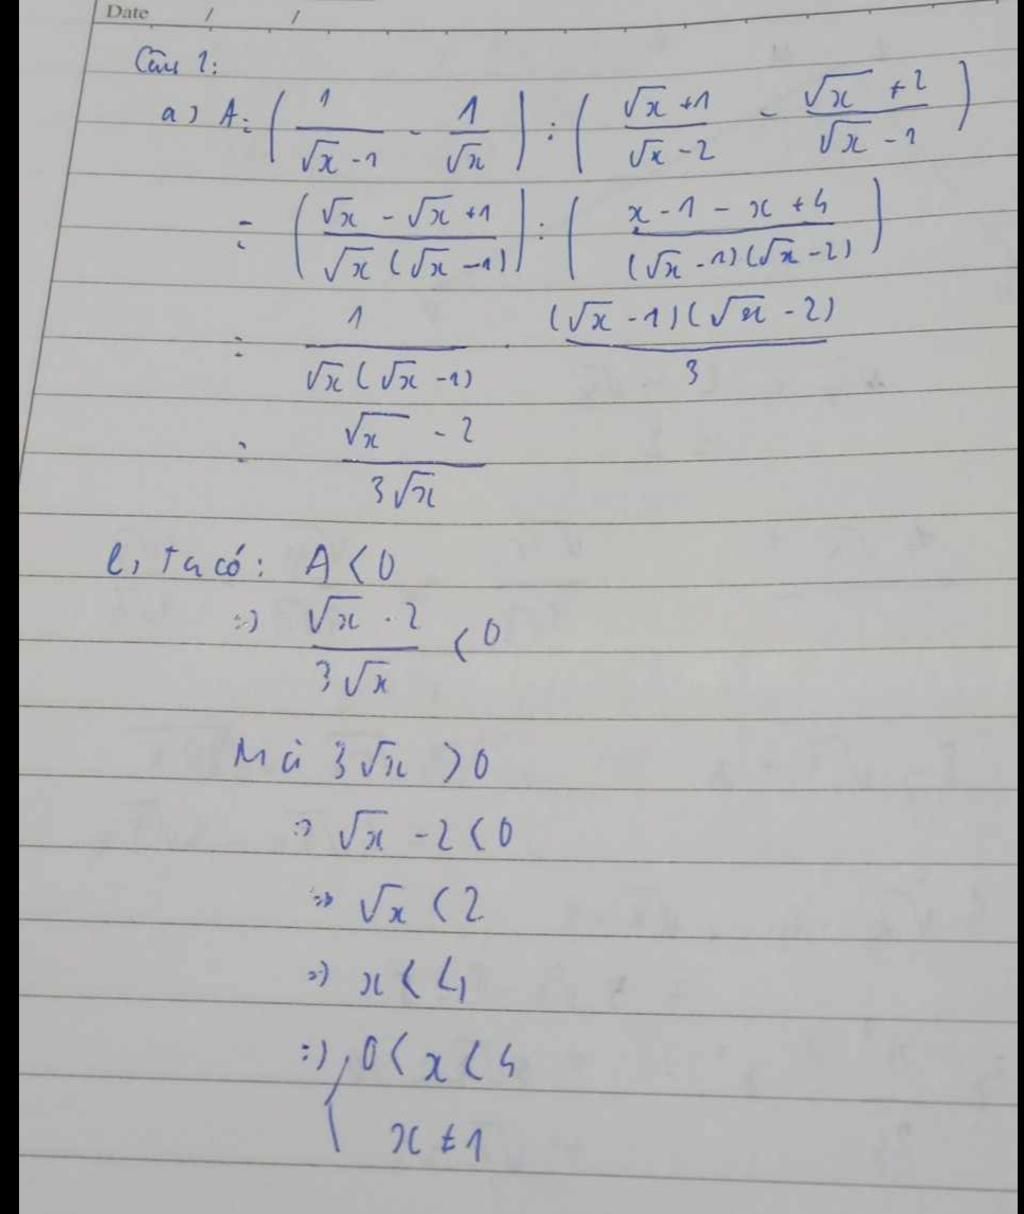 Date / /
Câu 1:
a) A = (1/(√x - 1) - 1/√x) : ((√x + 1)/(√x - 2) - (√x + 2)/(√x - 1))
= ((√x - √x + 1)/(√x (√x - 1))) : ((x - 1 - x + 4)/((√x - 1)(√x - 2)))
= 1/(√x (√x - 1)) . ((√x - 1)(√x - 2))/3
= (√x - 2)/(3√x)
b, Ta có: A < 0
=> (√x - 2)/(3√x) < 0
Mà 3√x > 0
=> √x - 2 < 0
=> √x < 2
=> x < 4
=> { 0 < x < 4
x ≠ 1